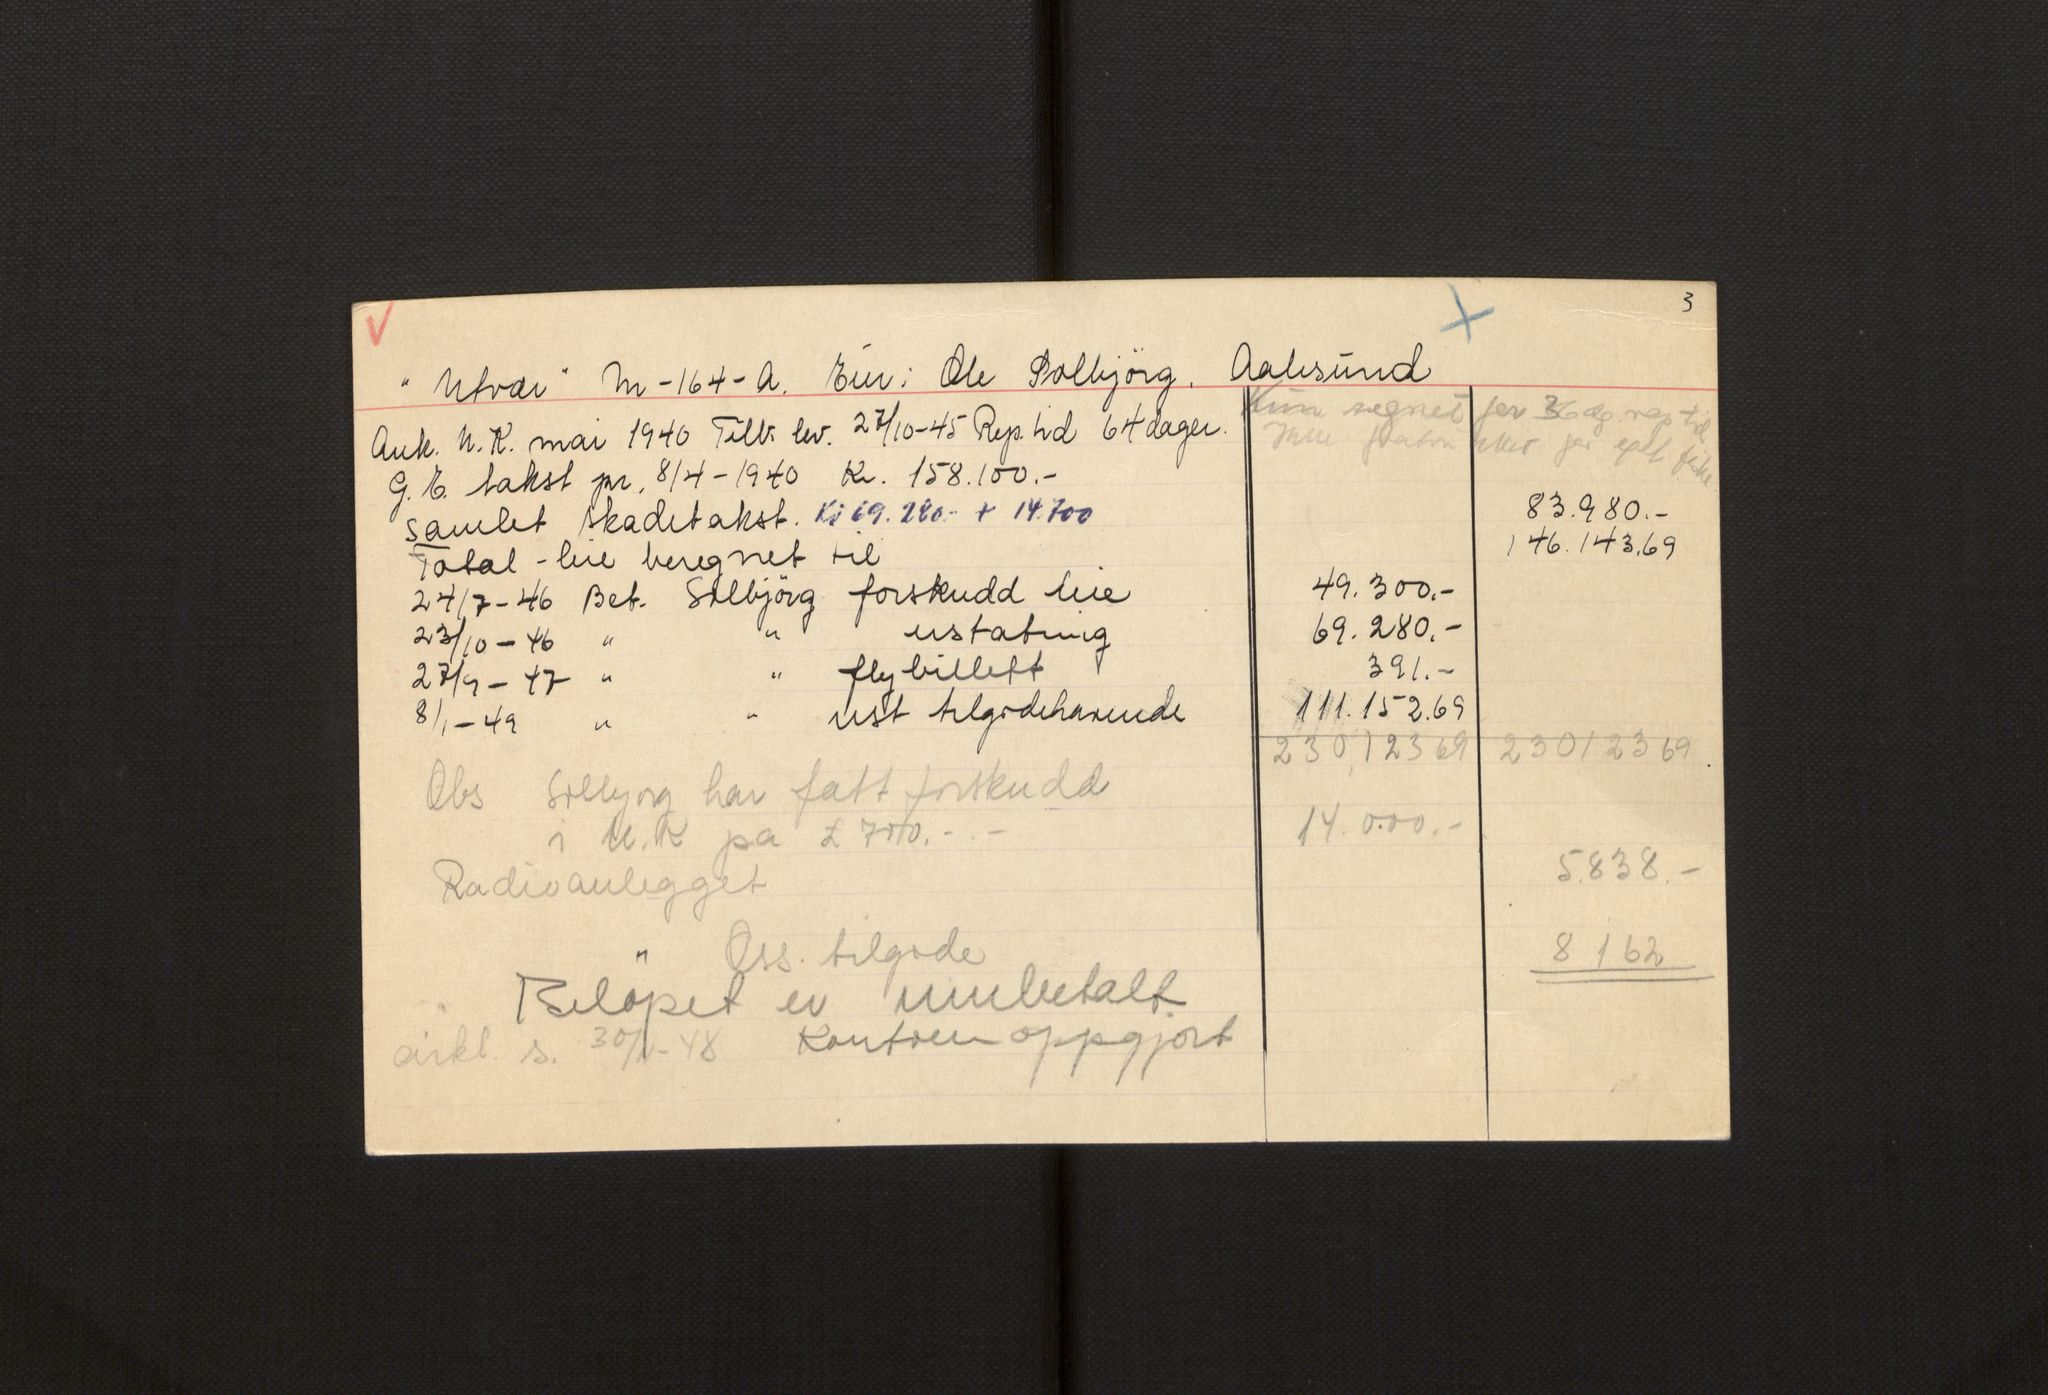 3
"Utvær" M-164-A. Eier: Ole Solbjörg. Aalesund
Kun regnet for 36 dg. rep tid.
Ank. U.K. mai 1940 Tilb. lev. 27/10-45 Rep. tid 64 dager.
Ikke for eget
G.E. takst pr. 8/4-1940 Kr. 158.100.-
samlet skadetakst. Kr 69.280.- + 14.700 83.980.-
Total-leie beregnet til 146.143,69
24/7-46 Bet. Solbjörg forskudd leie 49.300.-
23/10-46 " " erstatning 69.280.-
27/9-47 " " flybillett 391.-
8/1-49 " " rest tilgodehavende 111.152.69
230,12369 23012369
Obs Solbjörg har fått forskudd
i U.K på £ 700.-.- 14.000.-
Radioanlegget 5.838.-
" Oss. tilgode 8162
Belöpet er innbetalt
sirkl. s. 30/1-48 Kontoen oppgjort